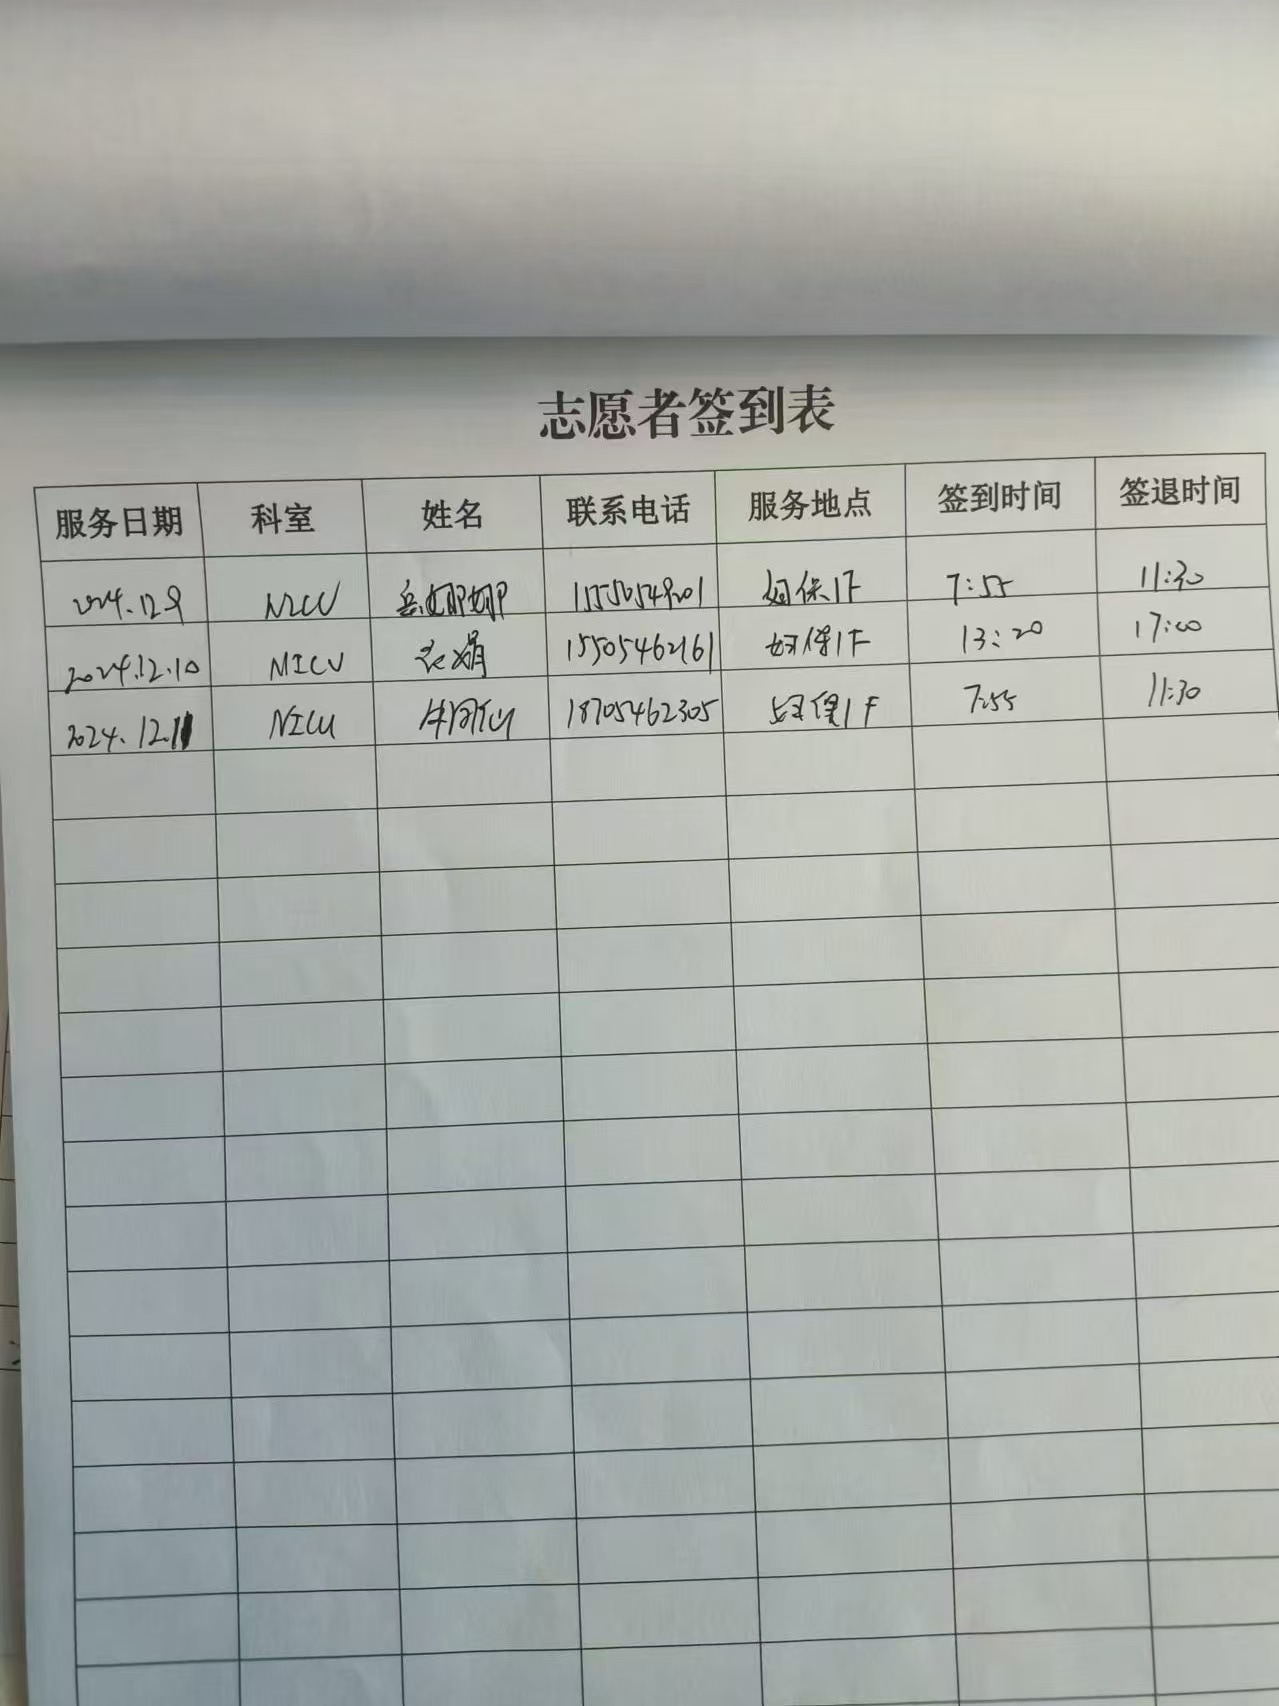 志愿者签到表
服务日期 科室 姓名 联系电话 服务地点 签到时间 签退时间
2024.12.9 NICU 岳娜娜 15550549201 妇保1F 7:55 11:30
2024.12.10 NICU 衣娟 15505462161 妇保1F 13:20 17:00
2024.12.11 NICU 18705462305 妇保1F 7:55 11:30